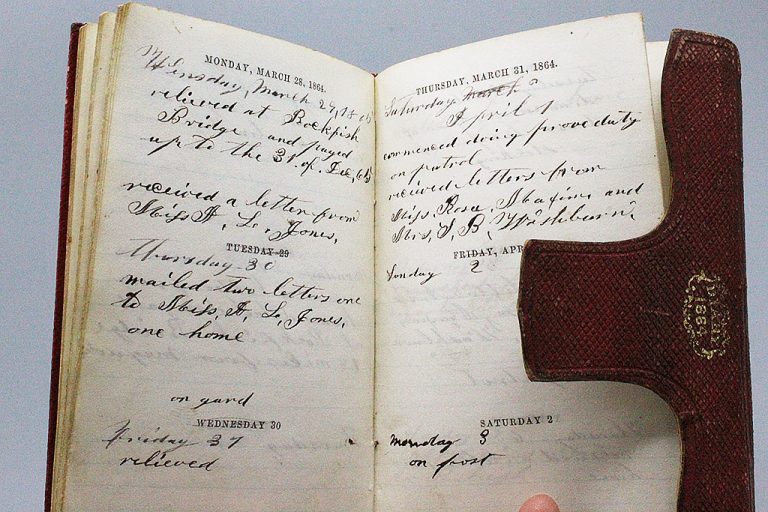 MONDAY, MARCH 28, 1864.
Wensday, March 29, 1865
relieved at Rockfish
Bridge and payed
up to the 31. of. Dec, 64
received a letter from
Miss A, L, Jones,
TUESDAY 29
Thursday 30
mailed two letters one
to Miss, A, L, Jones,
one home
on gard
WEDNESDAY 30
Friday 31
relieved
THURSDAY, MARCH 31, 1864.
Saturday March
April 1
commenced doing prove duty
on patrol
received letters from
Miss, Rosa, Maxim, and
Mrs, S, B, Washburn,
FRIDAY, APR
Sonday 2
SATURDAY 2
Monday 3
on post
DIARY
1864